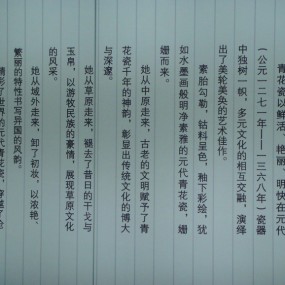 青花瓷以鲜活、艳丽、明快在元代
（公元一二七一年——一三六八年）瓷器
中独树一帜，多元文化的相互交融，演绎
出了美轮美奂的艺术佳作。
素胎勾勒，钴料呈色，釉下彩绘，犹
如水墨画般明净素雅的元代青花瓷，姗
姗而来。
她从中原走来，古老的文明赋予了青
花瓷千年的神韵，彰显出传统文化的博大
与深邃。
她从草原走来，褪去了昔日的干戈与
玉帛，以游牧民族的豪情，展现草原文化
的风采。
她从域外走来，卸了初妆，以浓艳、
繁丽的特性书写异国的风韵。
了世界的元代青花瓷，穿越了